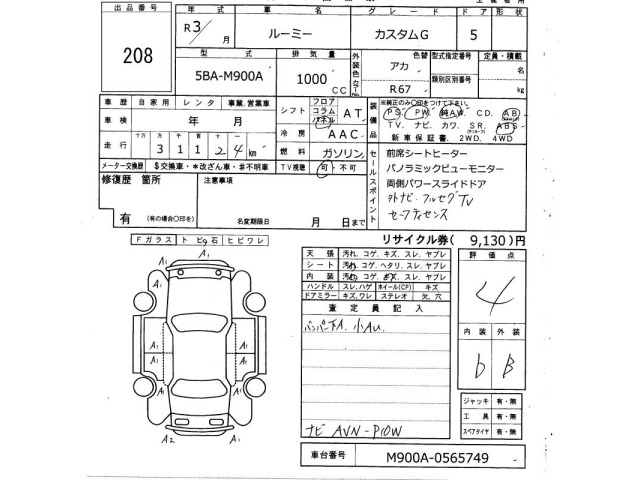 出品番号
208
年式
R3/月
車名
ルーミー
グレード
カスタムG
ドア
5
形状
型式
5BA-M900A
排気量
1000
CC
外装色
アカ
色替
カラーNo
R67
型式指定番号
類別区別番号
定員・積載
名
kg
車歴 自家用 レンタ 事業.営業車
車検 年 月
走行 十万 万 千 百 十 一
31124km
メーター交換歴 $交換車・*改ざん車・#不明車
シフト フロア コラム パネル AT
冷房 AAC
燃料 ガソリン
TV視聴 可・不可
装備品
※純正のみ○印をつけて下さい。
PS. PW. AW. CD. AB
TV. ナビ. カワ. SR. ABS
新車保証書. 2WD. 4WD
セールスポイント
前席シートヒーター
パノラミックビューモニター
両側パワースライドドア
外ナビ・フルセグTV
セーフティセンス
修復歴 箇所
有 (有の場合○印を)
注意事項
名変期限日 月 日まで
リサイクル券( 9,130)円
Fガラス トビ石 ヒビワレ
A1
A1
A1
A1
A1
A1
A1
A1
A1
A2
A1
天張 汚れ. コゲ. キズ. スレ. ヤブレ
シート 汚れ. コゲ. ヘタリ. スレ. ヤブレ
内装 汚れ. コゲ. キズ. スレ. ヤブレ
ハンドル スレ.ハゲ ホイール(CP) キズ
ドアミラー キズ.ワレ ステレオ 欠. 穴
査定員記入
バンパー下A. 小AU.
ナビ AVN-P10W
評価点
4
内装 外装
b B
ジャッキ 有・無
工具 有・無
スペアタイヤ 有・無
車台番号 M900A-0565749